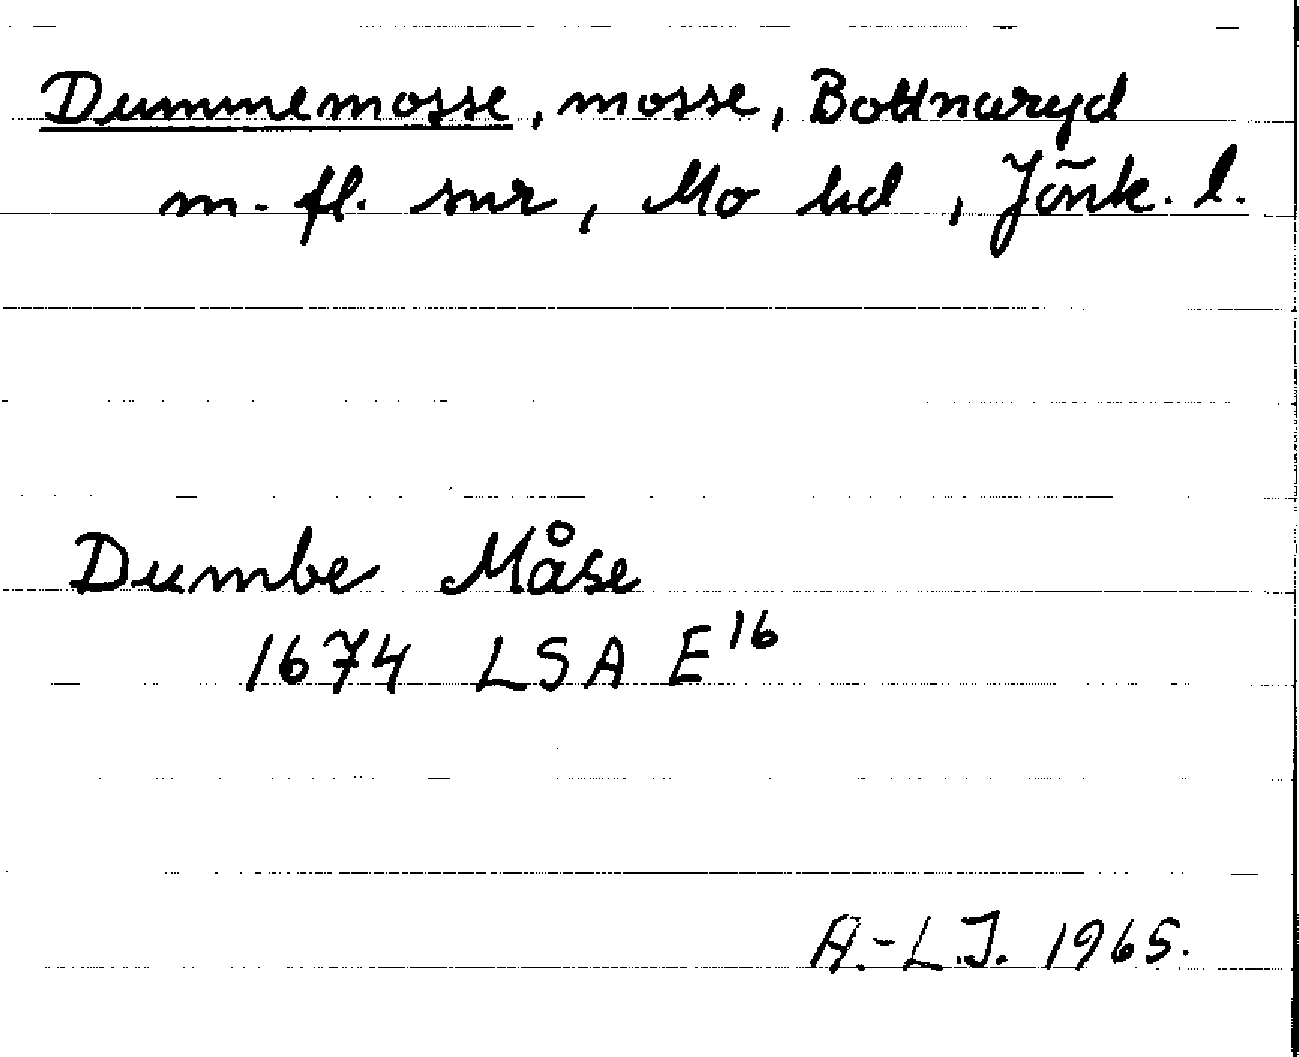 Dummemosse, mosse, Bottnaryd
m. fl. snr, Mo hd, Jönk. l.
Dumbe Måse
1674 LSA E16
A.-L.J. 1965.